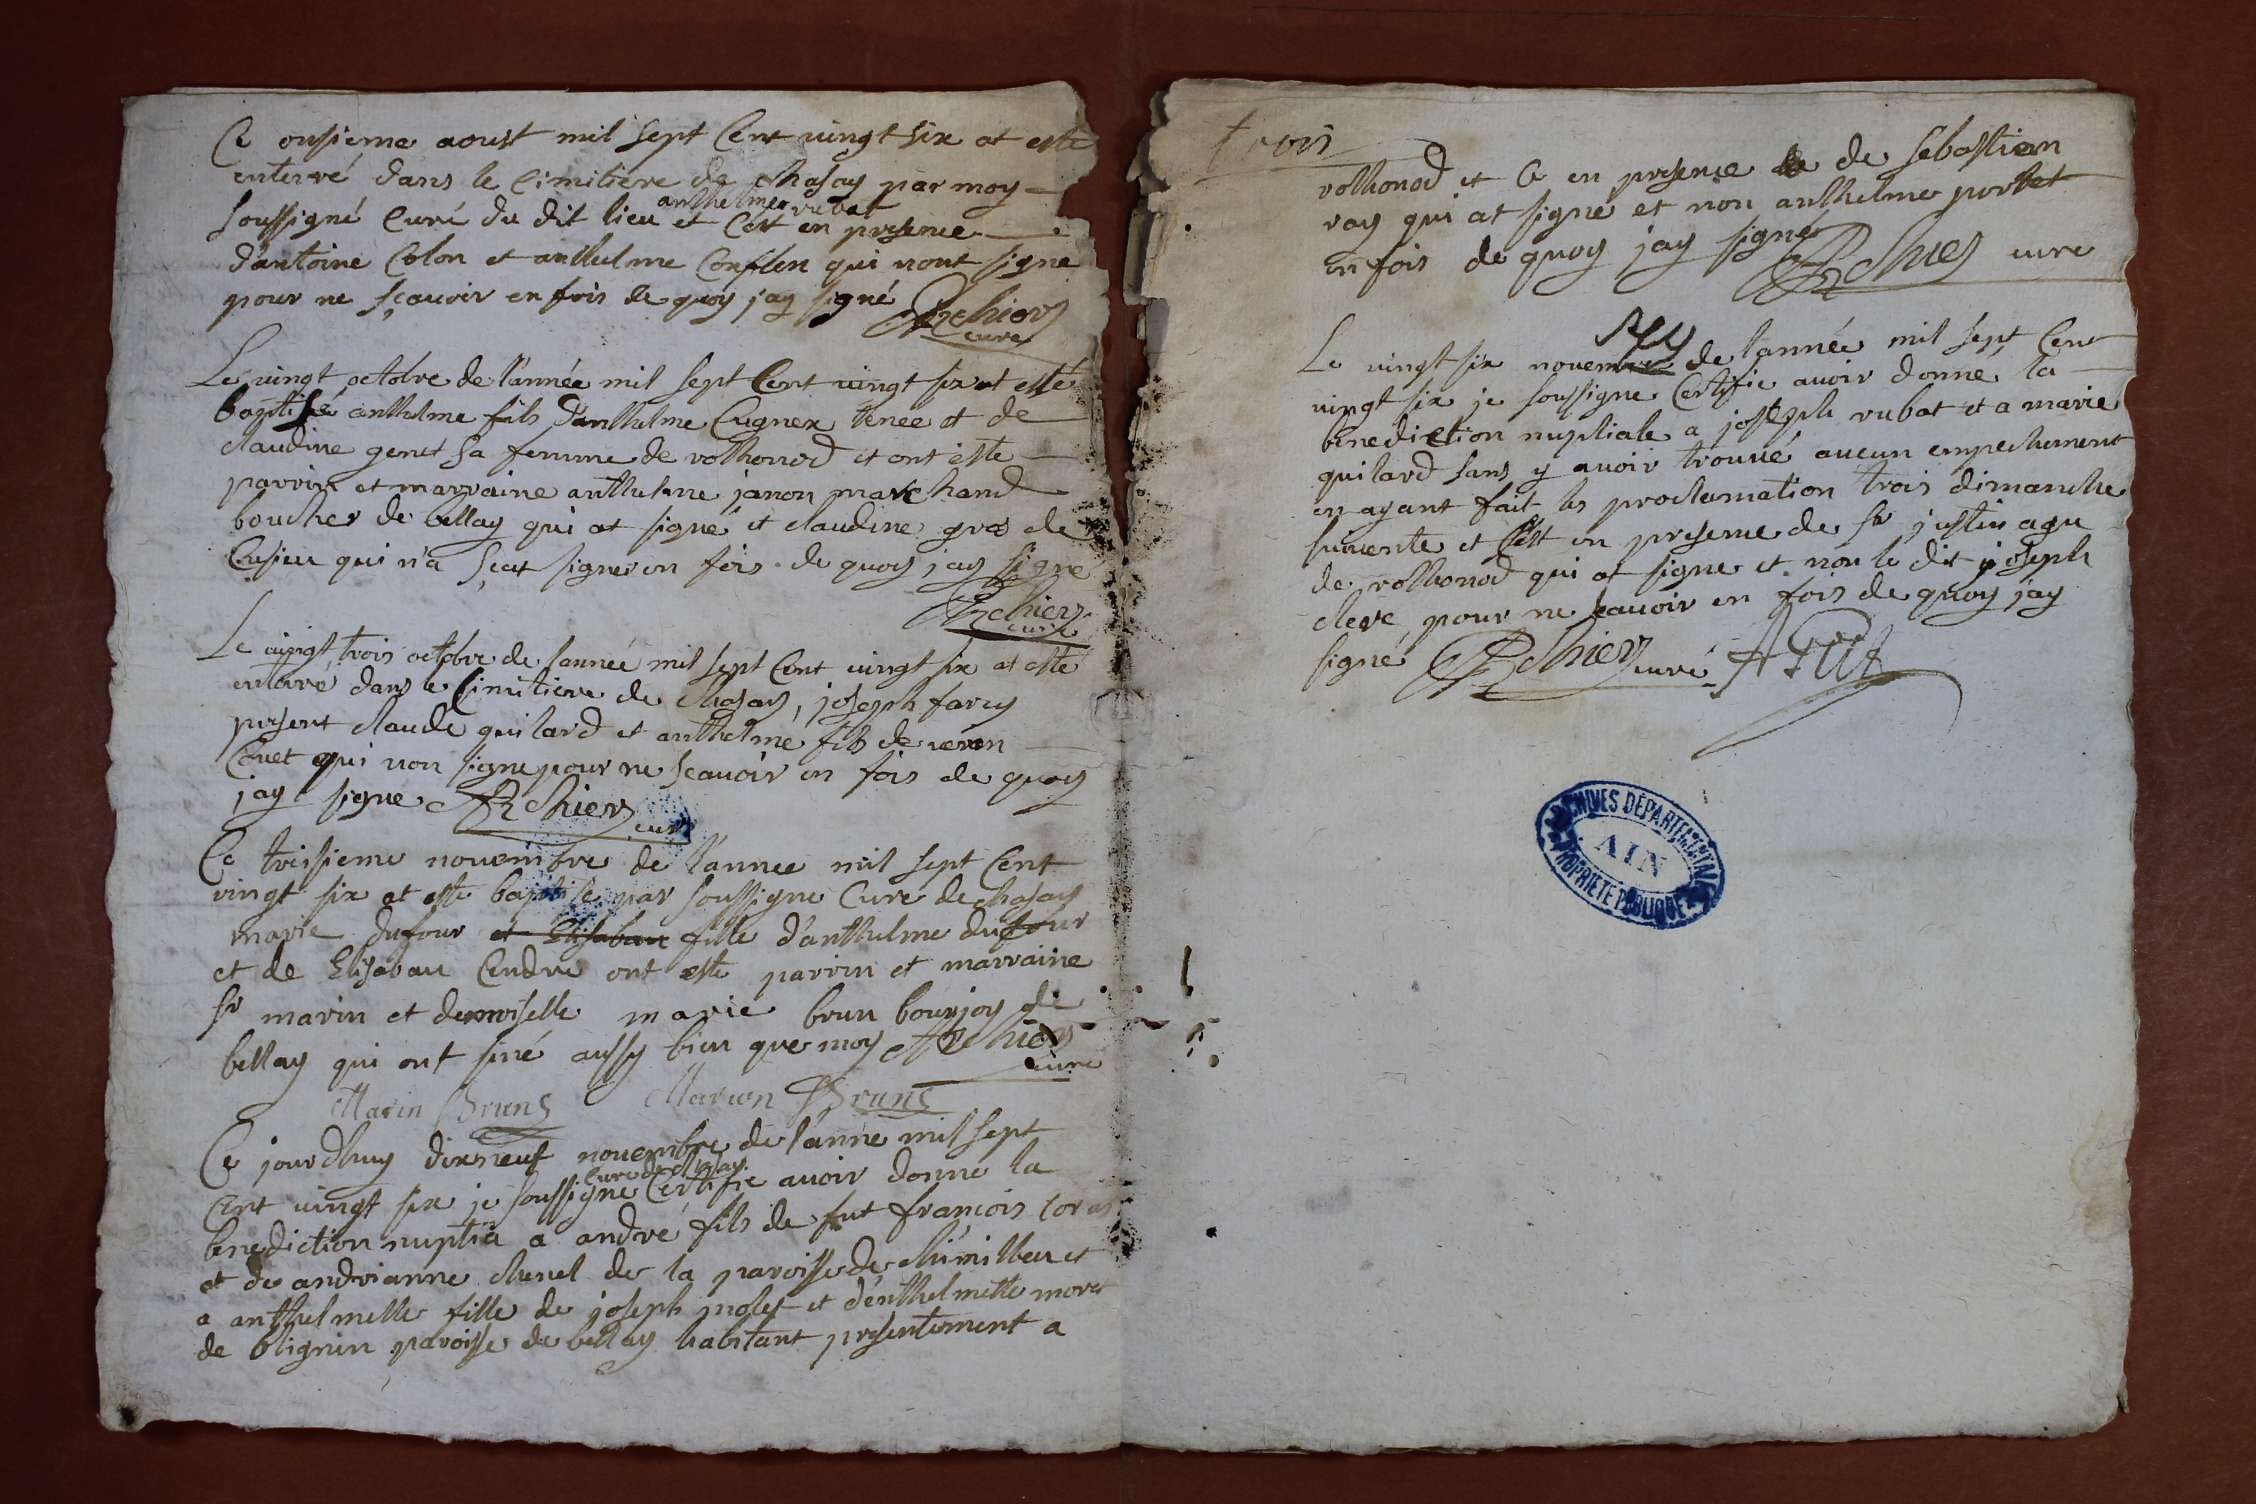 Ce onsieme aoust mil sept Cent vingt six at esté
enterré dans le Cimitiere de Chasay par moy
anthelme rubat
soussigné Curé du dit lieu et Cest en presence
d'antoine Colon et anthelme Conflen qui nont signe
pour ne sçavoir en fois de quoy jay signé Rchier
curé
Le vingt octobre de l'année mil sept Cent vingt six at esté
baptisé anthelme fils d'anthelme Cugnex et de
claudine genet sa femme de volhonod et ont este
parrin et marraine anthelme janon marchand
boucher de bellay qui at signé et claudine gros de
Cusieu qui n'a sçeu signer en fois de quoy jay signé
Rchier
curé
Le vingt trois octobre de lannée mil sept Cent vingt six at esté
enterré dans le Cimitiere de Chasay, joseph farcy
present claude guilard et anthelme fils de
Couet qui non signe pour ne sçavoir en fois de quoy
jay signe Rchier
curé
Ce troisieme novembre de l'annee mil sept Cent
vingt six at este baptise par soussigne Curé de Chasay
marie dufour et Elisabau fille d'anthelme dufour
et de Elisabau Cendre ont esté parrin et marraine
sr marin et demoiselle marie brun bourjoy de
bellay qui ont siné aussy bien que moy Rchier
curé
Marin Bruns Marion Bruns
Ce jourdhuy dixneuf novembre de l'anne mil sept
Curé de Chasay
Cent vingt six je soussigne Certifie avoir donné la
benediction nuptia a andré fils de fut francois
et de andrianne chenel de la paroisse de chimillieu et
a anthelmelle fille de joseph molet et d'enthelmette moret
de blignin paroisse de bellay habitant presentement a
trois
volhonod et Ce en presence de de sebastien
ray qui at signé et non anthelme portet
en fois de quoy jay signé
Rchier curé
Le vingt six novembre de lannée mil sept Cent
vingt six je soussigne Certifie avoir donné la
benediction nuptiale a joseph rubat et a marie
guilard sans y avoir trouvé aucun empechement
en ayant fait les proclamation trois dimanche
suivente et Cest en presence de sr justin agu
de volhonod qui at signe et non le dit joseph
clerc pour ne scavoir en fois de quoy jay
signé Rchier curé
ARCHIVES DÉPARTEMENTALES
AIN
PROPRIÉTÉ PUBLIQUE